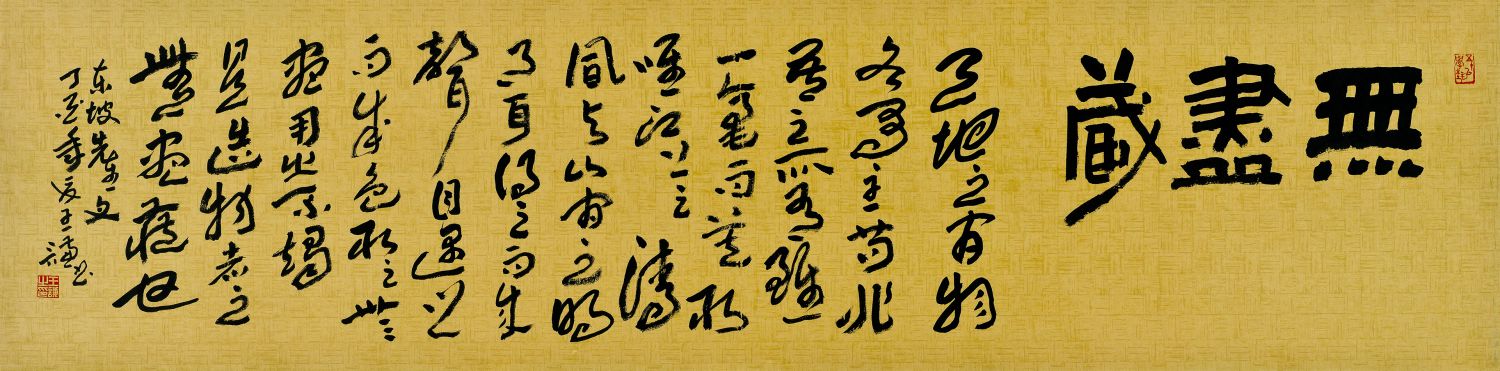 無盡藏
天地之間物
各有主苟非
吾之所有雖
一毫而莫取
唯江上之清
風与山間之明
月耳得之而成
聲目遇之
而成色取之無
盡用之不竭
是造物者之
無盡藏也
东坡先生文
丁酉年夏王謙书